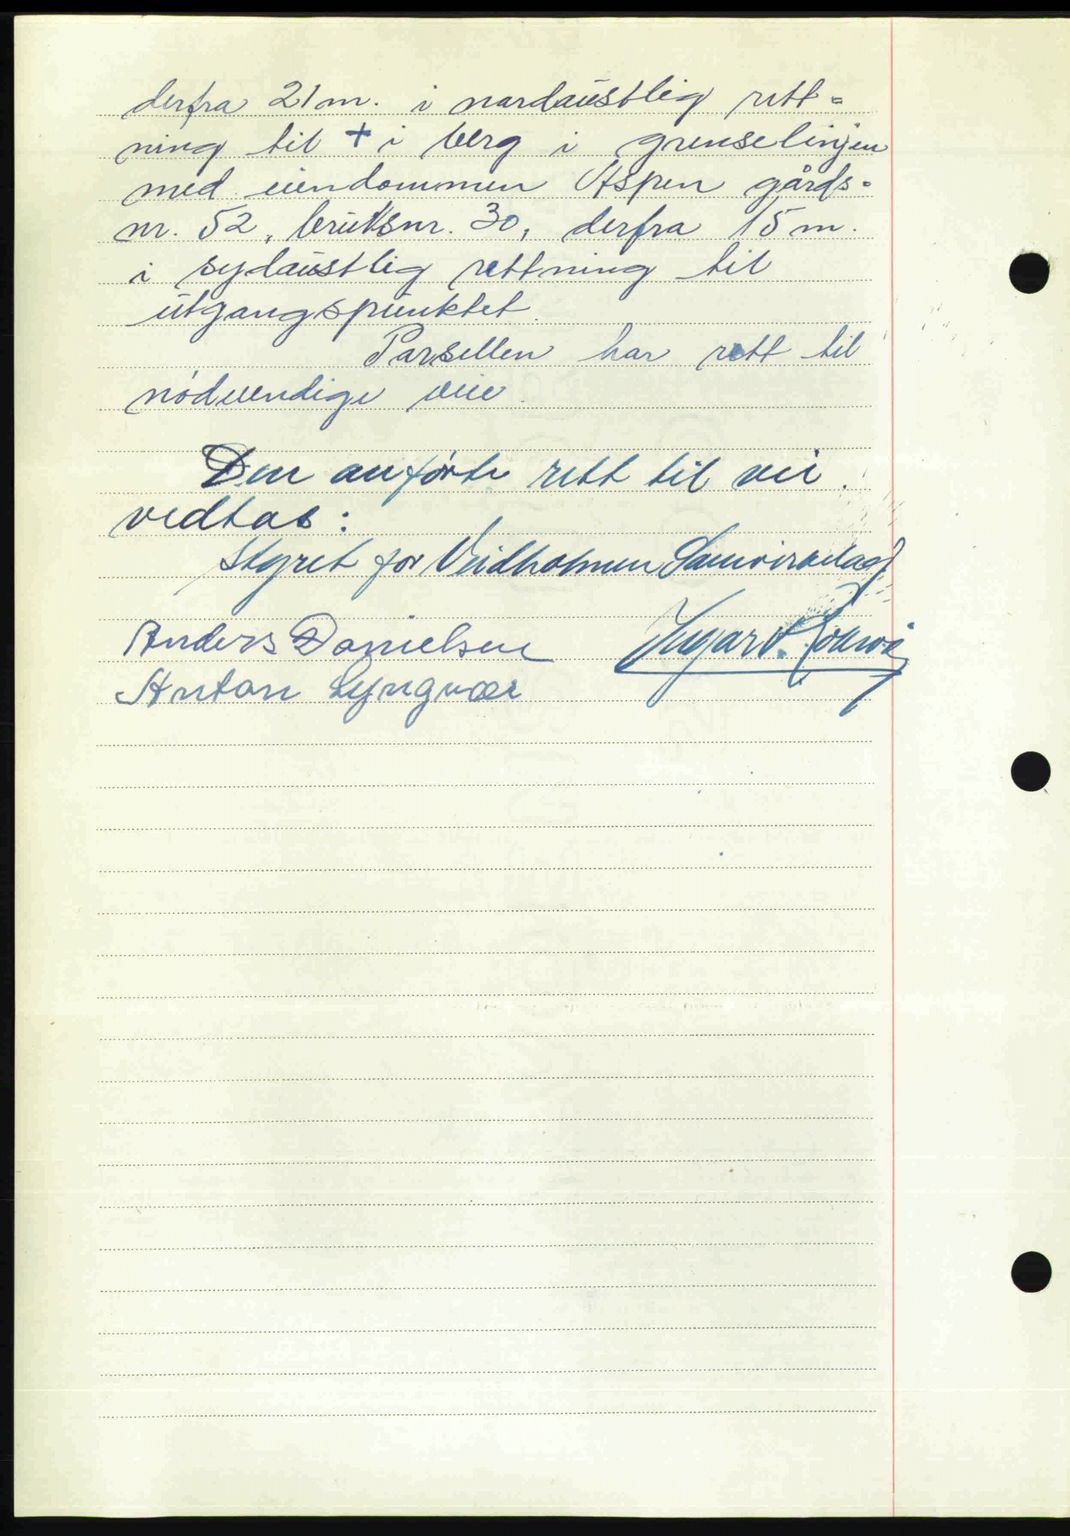 derfra 21 m. i nordaustlig rett=
ning til + i berg i grenselinjen
med eiendommen Aspen gårds=
nr. 52, bruksnr. 30, derfra 15 m.
i sydaustlig rettning til
utgangspunktet.
Parsellen har rett til
nödvendige veie.
Den anförte rett til vei
vedtas:
Styret for Veidholmen Samvirkelag
Anders Danielsen
Anton Lyngvær
Ingar